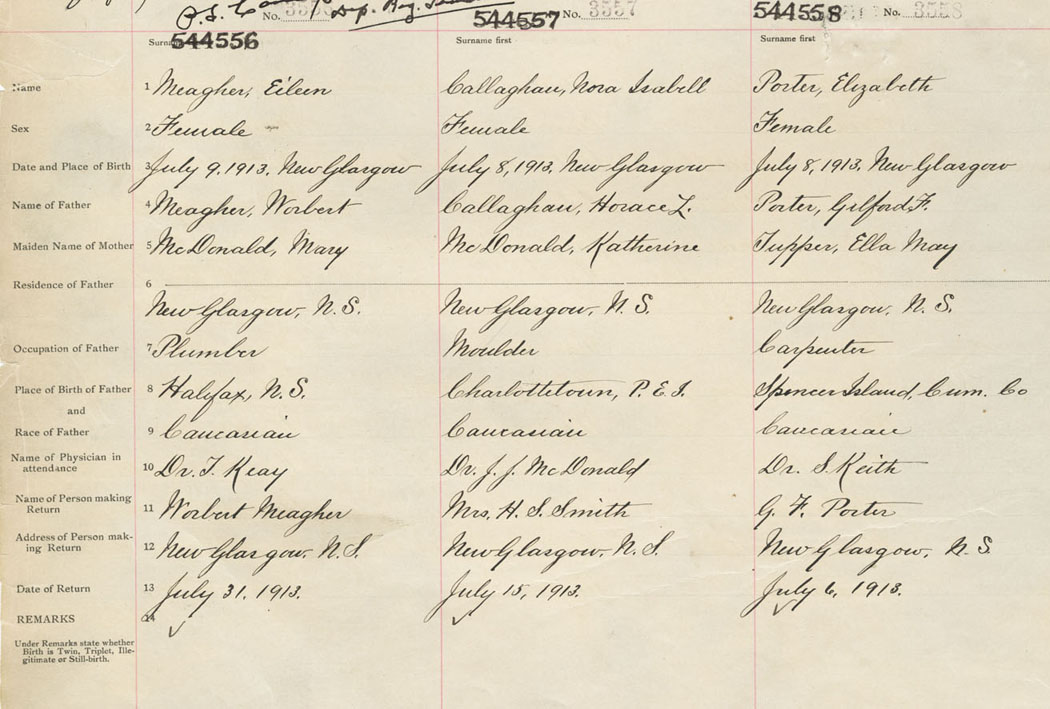 No. 3557 No. 3558
544557 544558
544556 Surname first Surname first
Name 1 Meagher, Eileen Callaghan, Nora Isabell Porter, Elizabeth
Sex 2 Female Female Female
Date and Place of Birth 3 July 9, 1913, New Glasgow July 8, 1913, New Glasgow July 8, 1913, New Glasgow
Name of Father 4 Meagher, Worbert Callaghan, Horace L. Porter, Gilford F.
Maiden Name of Mother 5 McDonald, Mary McDonald, Katherine Tupper, Ella May
Residence of Father 6
New Glasgow, N.S. New Glasgow, N.S. New Glasgow, N.S.
Occupation of Father 7 Plumber Moulder Carpenter
Place of Birth of Father 8 Halifax, N.S. Charlottetown, P.E.I. Spencer Island, Cum. Co
and
Race of Father 9 Caucasian Caucasian Caucasian
Name of Physician in
attendance 10 Dr. T. Keay Dr. J. J. McDonald Dr. S. Keith
Name of Person making
Return 11 Worbert Meagher Mrs. H. S. Smith G. F. Porter
Address of Person mak-
ing Return 12 New Glasgow, N.S. New Glasgow, N.S. New Glasgow, N.S.
Date of Return 13 July 31, 1913. July 15, 1913. July 6, 1913.
REMARKS 14
Under Remarks state whether
Birth is Twin, Triplet, Ille-
gitimate or Still-birth.